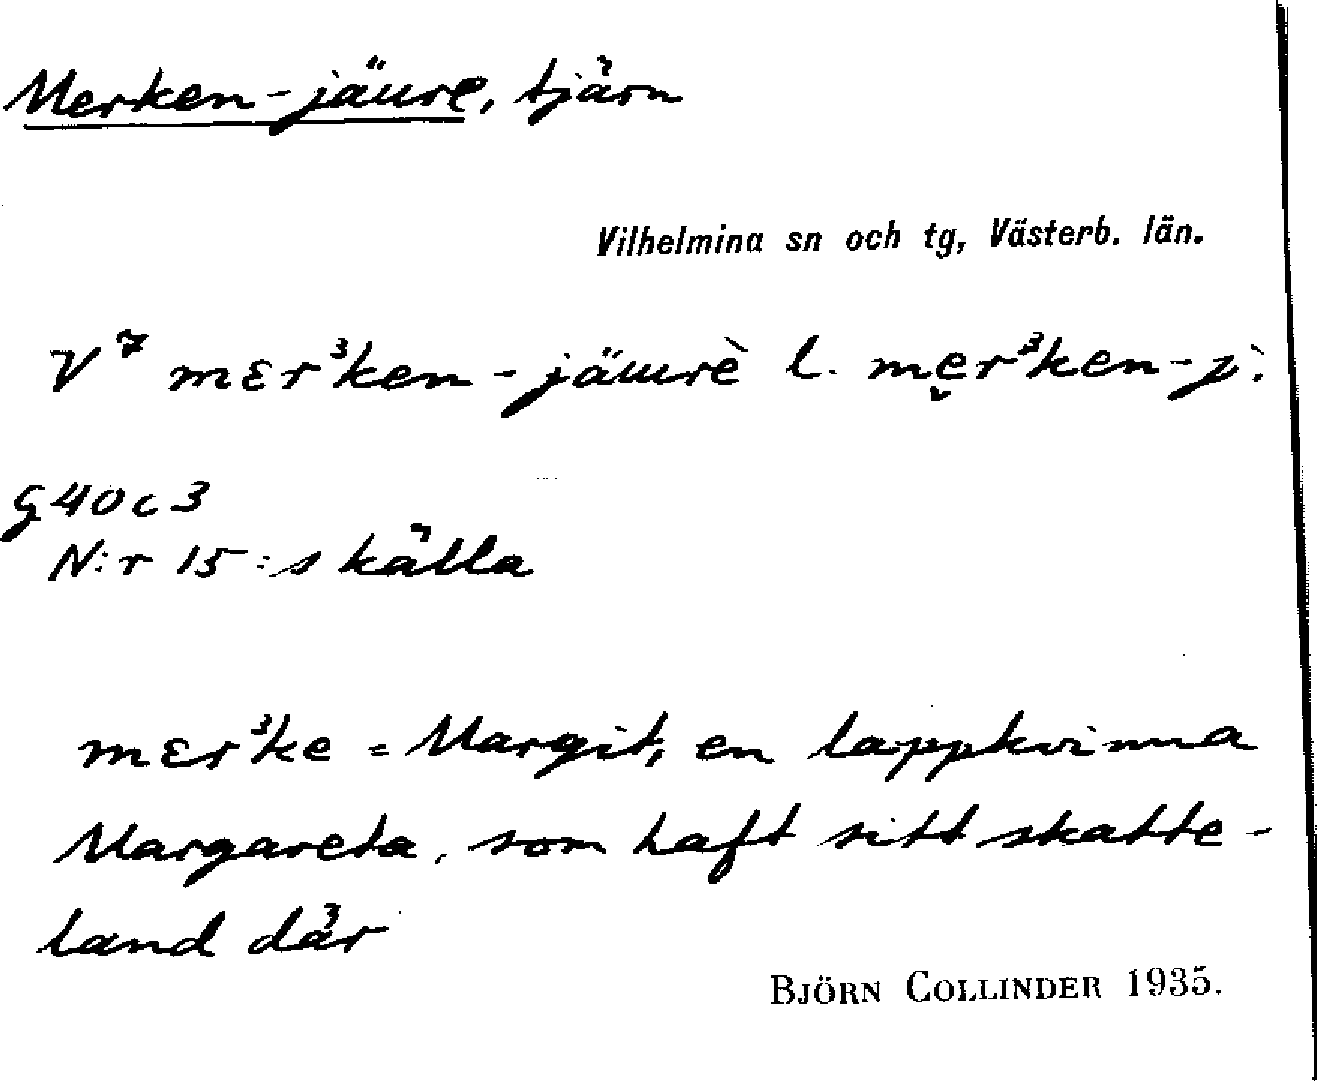 Merken-jäure, tjärn
Vilhelmina sn och tg, Västerb. län.
V⁷ mɛr³ken-jäurè l. me̬r³ken-j:
G40c3
N:r 15: s källa
mɛr³ke = Margit, en lappkvinna
Margareta, som haft sitt skatte-
land där
BJÖRN COLLINDER 1935.